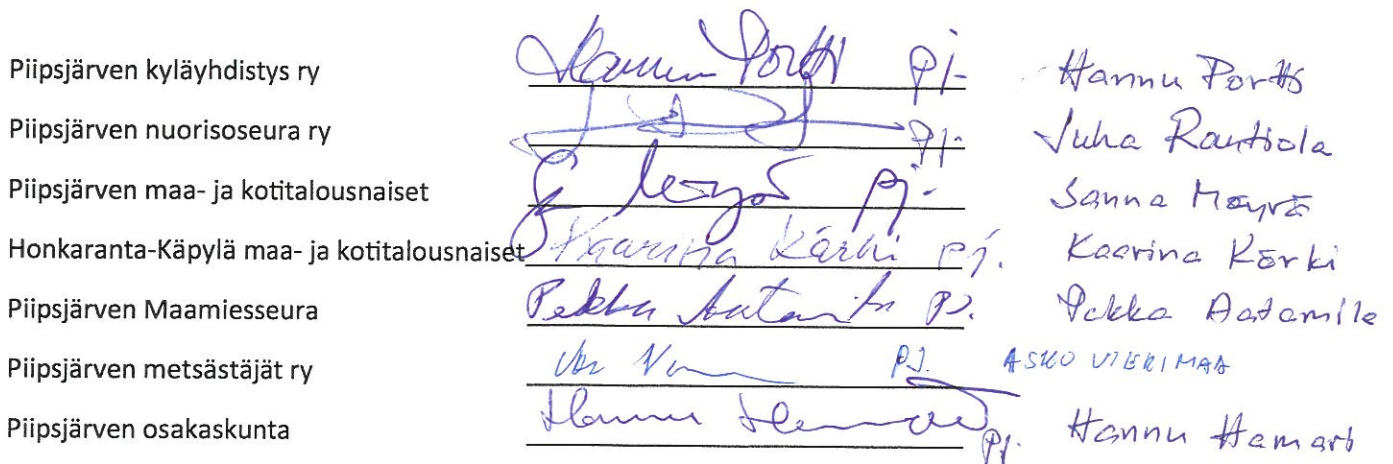 Piipsjärven kyläyhdistys ry Hannu pj. Hannu Portti
Piipsjärven nuorisoseura ry pj. Juha Rautiola
Piipsjärven maa- ja kotitalousnaiset pj. Sanna Mäyrä
Honkaranta-Käpylä maa- ja kotitalousnaiset Kaarina Kärki pj. Kaarina Kärki
Piipsjärven Maamiesseura Pekka pj. Pekka Aatamila
Piipsjärven metsästäjät ry pj. ASKO VIERIMAA
Piipsjärven osakaskunta Hannu pj. Hannu Hamari